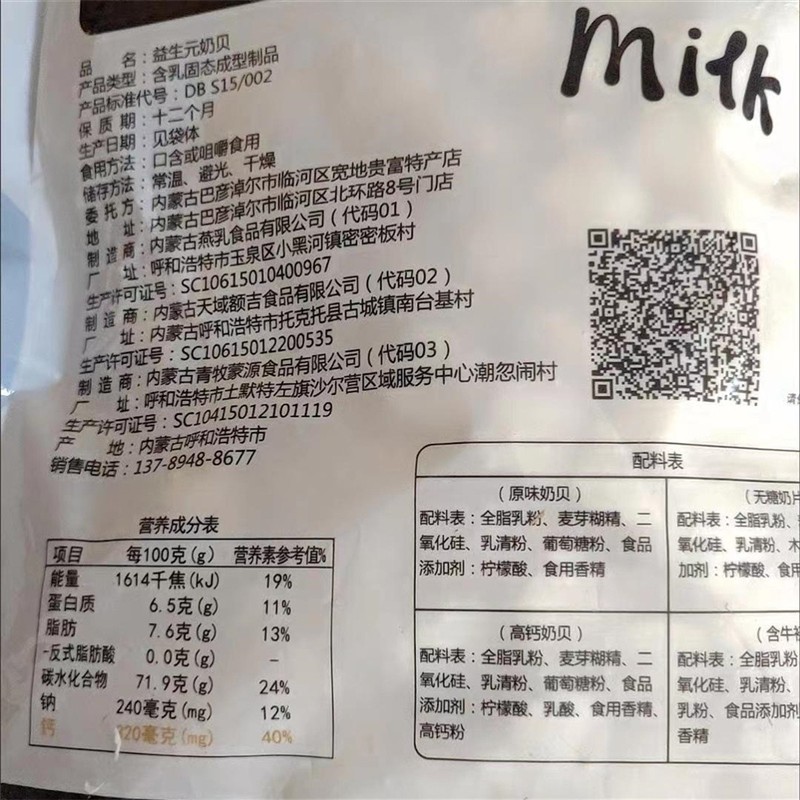 Milk
品 名：益生元奶贝
产品类型：含乳固态成型制品
产品标准代号：DB S15/002
保 质 期：十二个月
生产日期：见袋体
食用方法：口含或咀嚼食用
储存方法：常温、避光、干燥
委 托 方：内蒙古巴彦淖尔市临河区宽地贵富特产店
地 址：内蒙古巴彦淖尔市临河区北环路8号门店
制 造 商：内蒙古燕乳食品有限公司（代码01）
厂 址：呼和浩特市玉泉区小黑河镇密密板村
生产许可证号：SC10615010400967
制 造 商：内蒙古天域额吉食品有限公司（代码02）
厂 址：内蒙古呼和浩特市托克托县古城镇南台基村
生产许可证号：SC10615012200535
制 造 商：内蒙古青牧蒙源食品有限公司（代码03）
厂 址：呼和浩特市土默特左旗沙尔营区域服务中心潮忽闹村
生产许可证号：SC10415012101119
产 地：内蒙古呼和浩特市
销售电话：137-8948-8677
营养成分表
项目 每100克(g) 营养素参考值%
能量 1614千焦(kJ) 19%
蛋白质 6.5克(g) 11%
脂肪 7.6克(g) 13%
-反式脂肪酸 0.0克(g) -
碳水化合物 71.9克(g) 24%
钠 240毫克(mg) 12%
钙 320毫克(mg) 40%
配料表
（原味奶贝）
配料表：全脂乳粉、麦芽糊精、二
氧化硅、乳清粉、葡萄糖粉、食品
添加剂：柠檬酸、食用香精
（无糖奶片
配料表：全脂乳粉、
氧化硅、乳清粉、木
加剂：柠檬酸、食用
（高钙奶贝）
配料表：全脂乳粉、麦芽糊精、二
氧化硅、乳清粉、葡萄糖粉、食品
添加剂：柠檬酸、乳酸、食用香精、
高钙粉
（含牛初
配料表：全脂乳粉
氧化硅、乳清粉、
乳粉、食品添加剂
香精